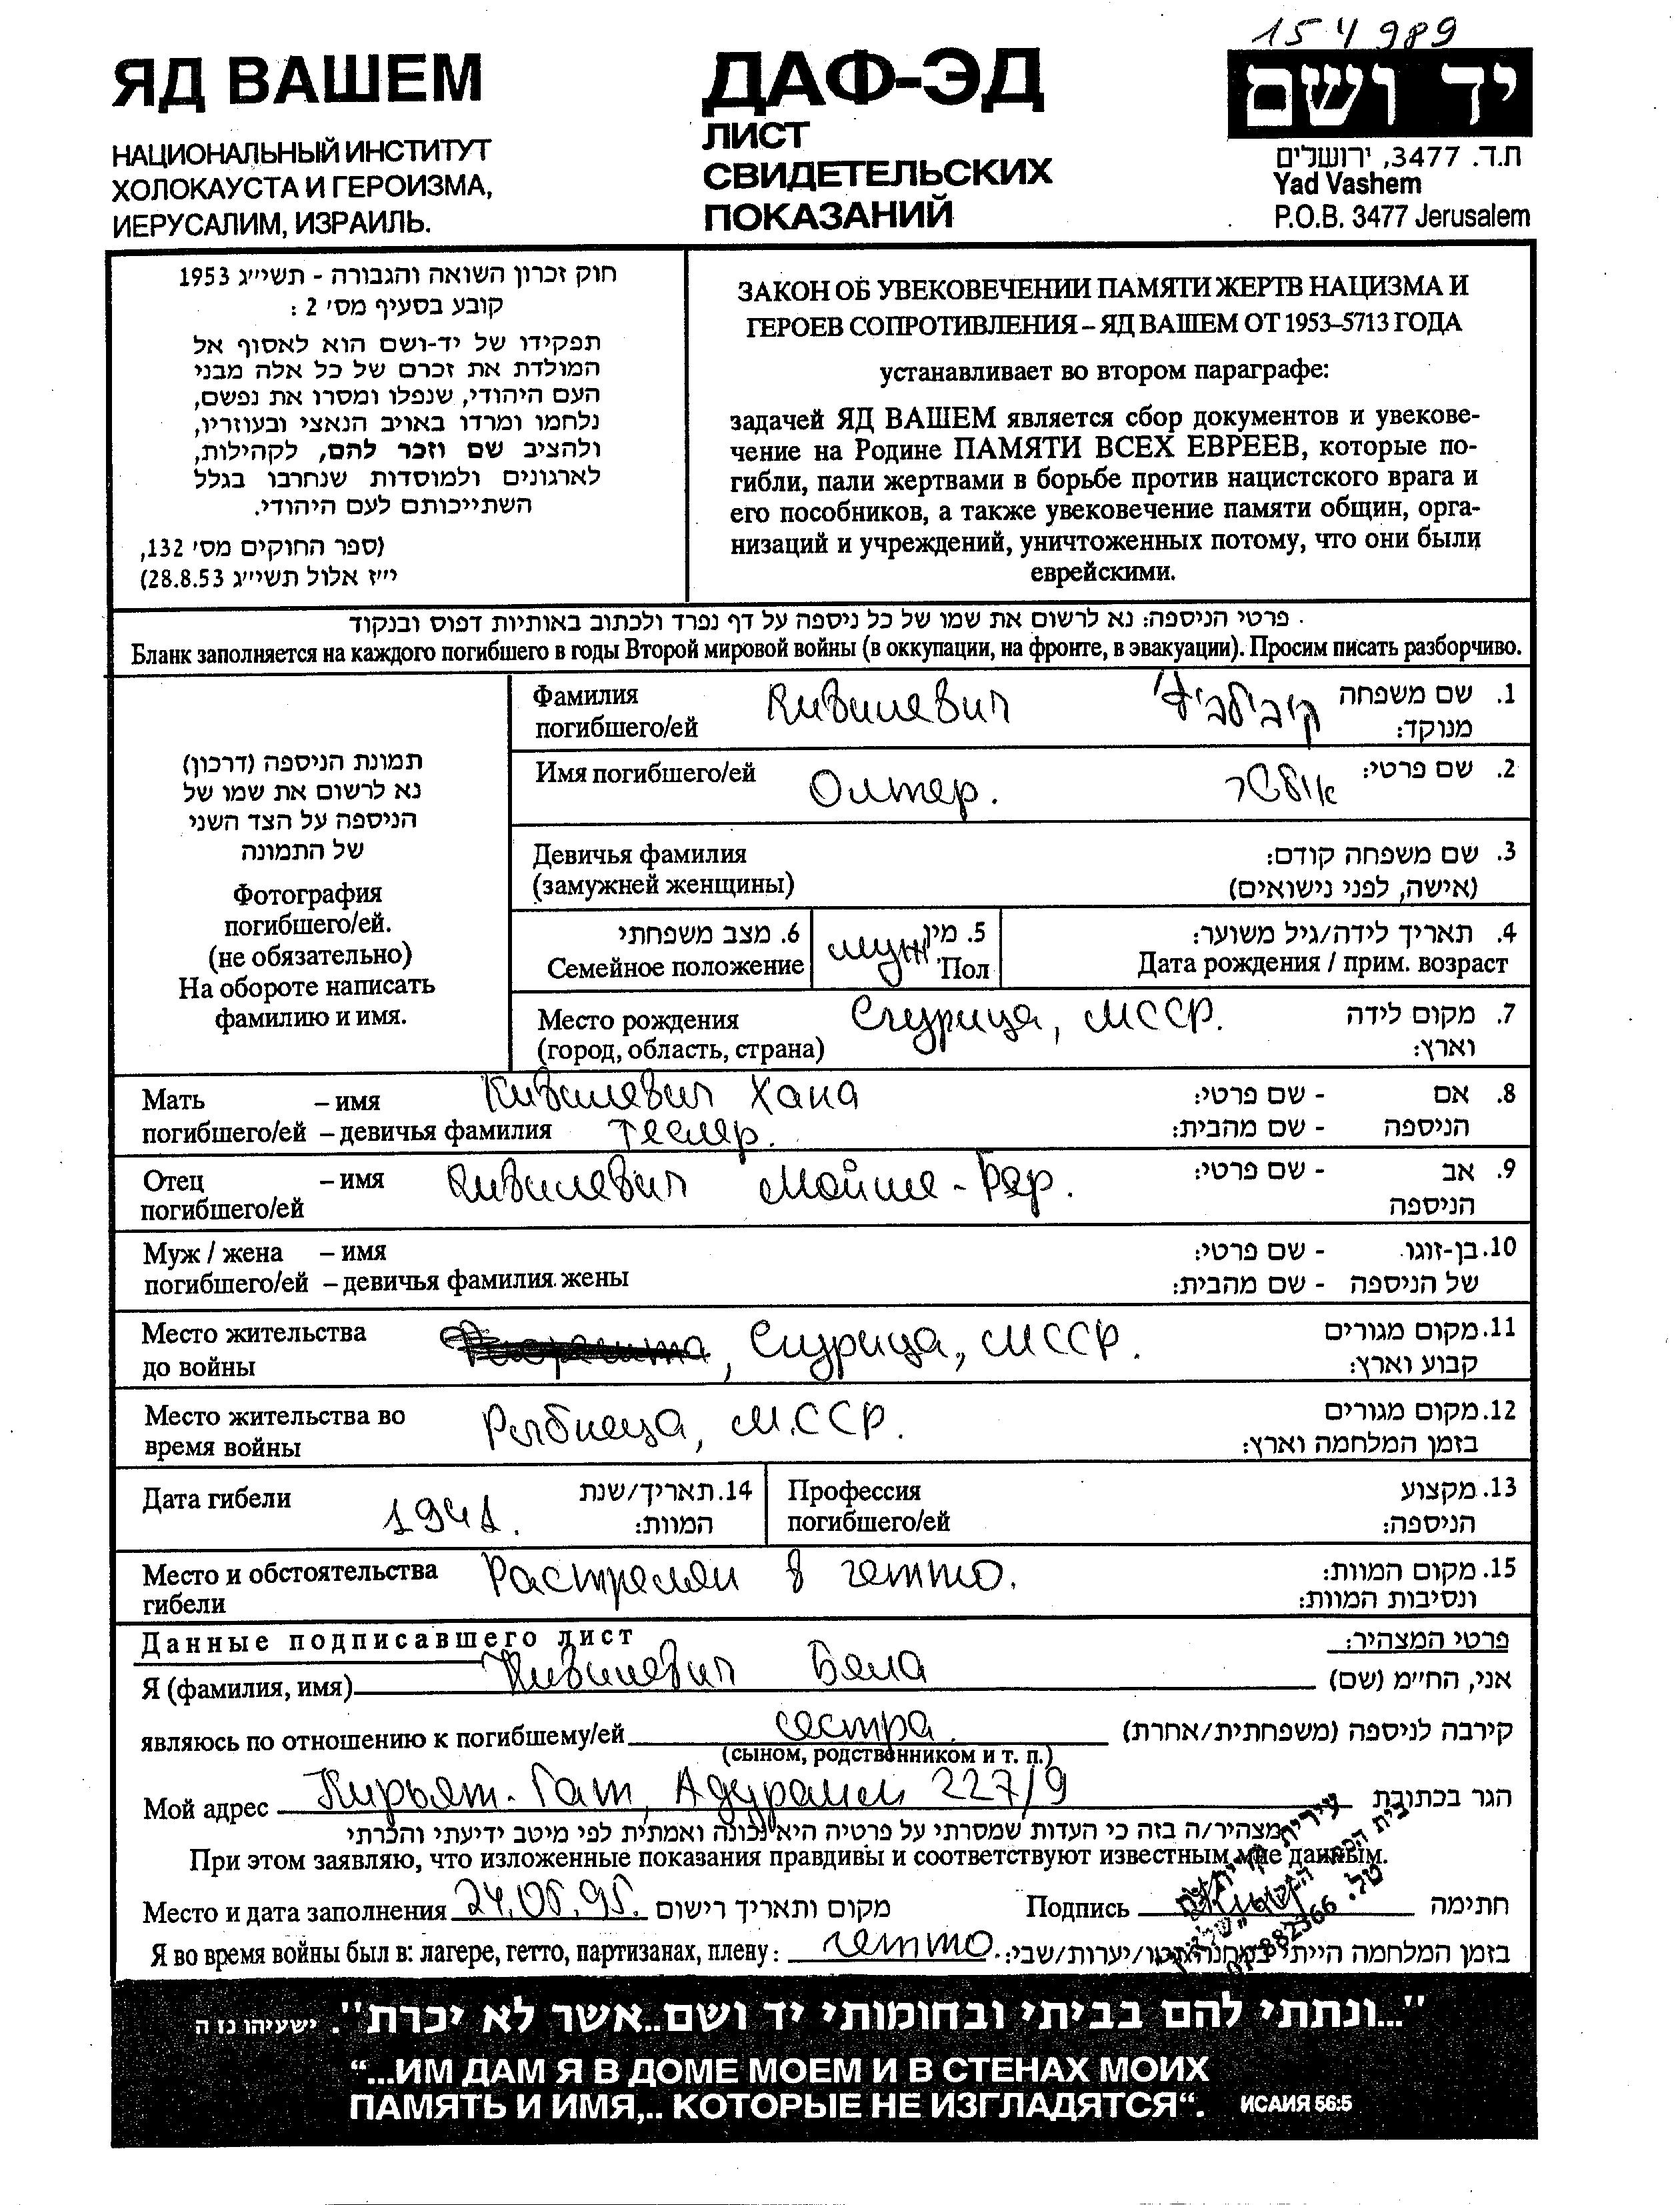 15 4 989
ЯД ВАШЕМ
НАЦИОНАЛЬНЫЙ ИНСТИТУТ
ХОЛОКАУСТА И ГЕРОИЗМА,
ИЕРУСАЛИМ, ИЗРАИЛЬ.
ДАФ-ЭД
ЛИСТ
СВИДЕТЕЛЬСКИХ
ПОКАЗАНИЙ
יד ושם
ת.ד. 3477, ירושלים
Yad Vashem
P.O.B. 3477 Jerusalem
חוק זכרון השואה והגבורה - תשי״ג 1953
קובע בסעיף מס׳ 2 :
תפקידו של יד-ושם הוא לאסוף אל
המולדת את זכרם של כל אלה מבני
העם היהודי, שנפלו ומסרו את נפשם,
נלחמו ומרדו באויב הנאצי ובעוזריו,
ולהציב שם וזכר להם, לקהילות,
לארגונים ולמוסדות שנחרבו בגלל
השתייכותם לעם היהודי.
(ספר החוקים מס׳ 132,
י״ז אלול תשי״ג 28.8.53)
ЗАКОН ОБ УВЕКОВЕЧЕНИИ ПАМЯТИ ЖЕРТВ НАЦИЗМА И
ГЕРОЕВ СОПРОТИВЛЕНИЯ – ЯД ВАШЕМ ОТ 1953–5713 ГОДА
устанавливает во втором параграфе:
задачей ЯД ВАШЕМ является сбор документов и увекове-
чение на Родине ПАМЯТИ ВСЕХ ЕВРЕЕВ, которые по-
гибли, пали жертвами в борьбе против нацистского врага и
его пособников, а также увековечение памяти общин, орга-
низаций и учреждений, уничтоженных потому, что они были
еврейскими.
פרטי הניספה: נא לרשום את שמו של כל ניספה על דף נפרד ולכתוב באותיות דפוס ובנקוד.
Бланк заполняется на каждого погибшего в годы Второй мировой войны (в оккупации, на фронте, в эвакуации). Просим писать разборчиво.
תמונת הניספה (דרכון)
נא לרשום את שמו של
הניספה על הצד השני
של התמונה
Фотография
погибшего/ей.
(не обязательно)
На обороте написать
фамилию и имя.
Фамилия Кивилевич קיבילביץ' 1. שם משפחה
погибшего/ей מנוקד:
Имя погибшего/ей Олтер. אולטר 2. שם פרטי:
Девичья фамилия 3. שם משפחה קודם:
(замужней женщины) (אישה, לפני נישואים)
6. מצב משפחתי 5. מין 4. תאריך לידה/גיל משוער:
Семейное положение муж Пол Дата рождения / прим. возраст
Место рождения Згурица, МССР. 7. מקום לידה
(город, область, страна) וארץ:
Мать – имя Кивилевич Хана 8. אם - שם פרטי:
погибшего/ей – девичья фамилия Теслер. הניספה - שם מהבית:
Отец – имя Кивилевич Мойше-Бер. 9. אב - שם פרטי:
погибшего/ей הניספה
Муж / жена – имя 10. בן-זוגו - שם פרטי:
погибшего/ей – девичья фамилия жены של הניספה - שם מהבית:
Место жительства , Згурица, МССР. 11. מקום מגורים
до войны קבוע וארץ:
Место жительства во Рыбница, М.ССР. 12. מקום מגורים
время войны בזמן המלחמה וארץ:
Дата гибели 1941. 14. תאריך/שנת Профессия 13. מקצוע
המוות: погибшего/ей הניספה:
Место и обстоятельства Растрелян в гетто. 15. מקום המוות:
гибели ונסיבות המוות:
Данные подписавшего лист פרטי המצהיר:
Я (фамилия, имя) Кивилевич Бела אני, הח״מ (שם)
являюсь по отношению к погибшему/ей сестра. קירבה לניספה (משפחתית/אחרת)
(сыном, родственником и т. п.)
Мой адрес Кирьят-Гат, Адураим 227/9 הגר בכתובת
מצהיר/ה בזה כי העדות שמסרתי על פרטיה היא נכונה ואמתית לפי מיטב ידיעתי והכרתי
При этом заявляю, что изложенные показания правдивы и соответствуют известным мне данным.
Место и дата заполнения 24.05.95. מקום ותאריך רישום Подпись חתימה
Я во время войны был в: лагере, гетто, партизанах, плену: гетто. בזמן המלחמה הייתי במחנה/גטו/יערות/שבי:
עירית קרית גת
טל. 882366
"...ונתתי להם בביתי ובחומותי יד ושם..אשר לא יכרת". ישעיהו נז ה
“...ИМ ДАМ Я В ДОМЕ МОЕМ И В СТЕНАХ МОИХ
ПАМЯТЬ И ИМЯ,.. КОТОРЫЕ НЕ ИЗГЛАДЯТСЯ“. ИСАИЯ 56:5